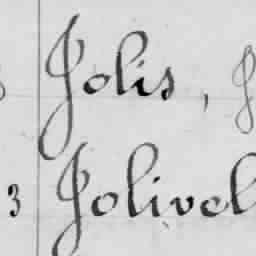 Jolis, J
3 Jolivel